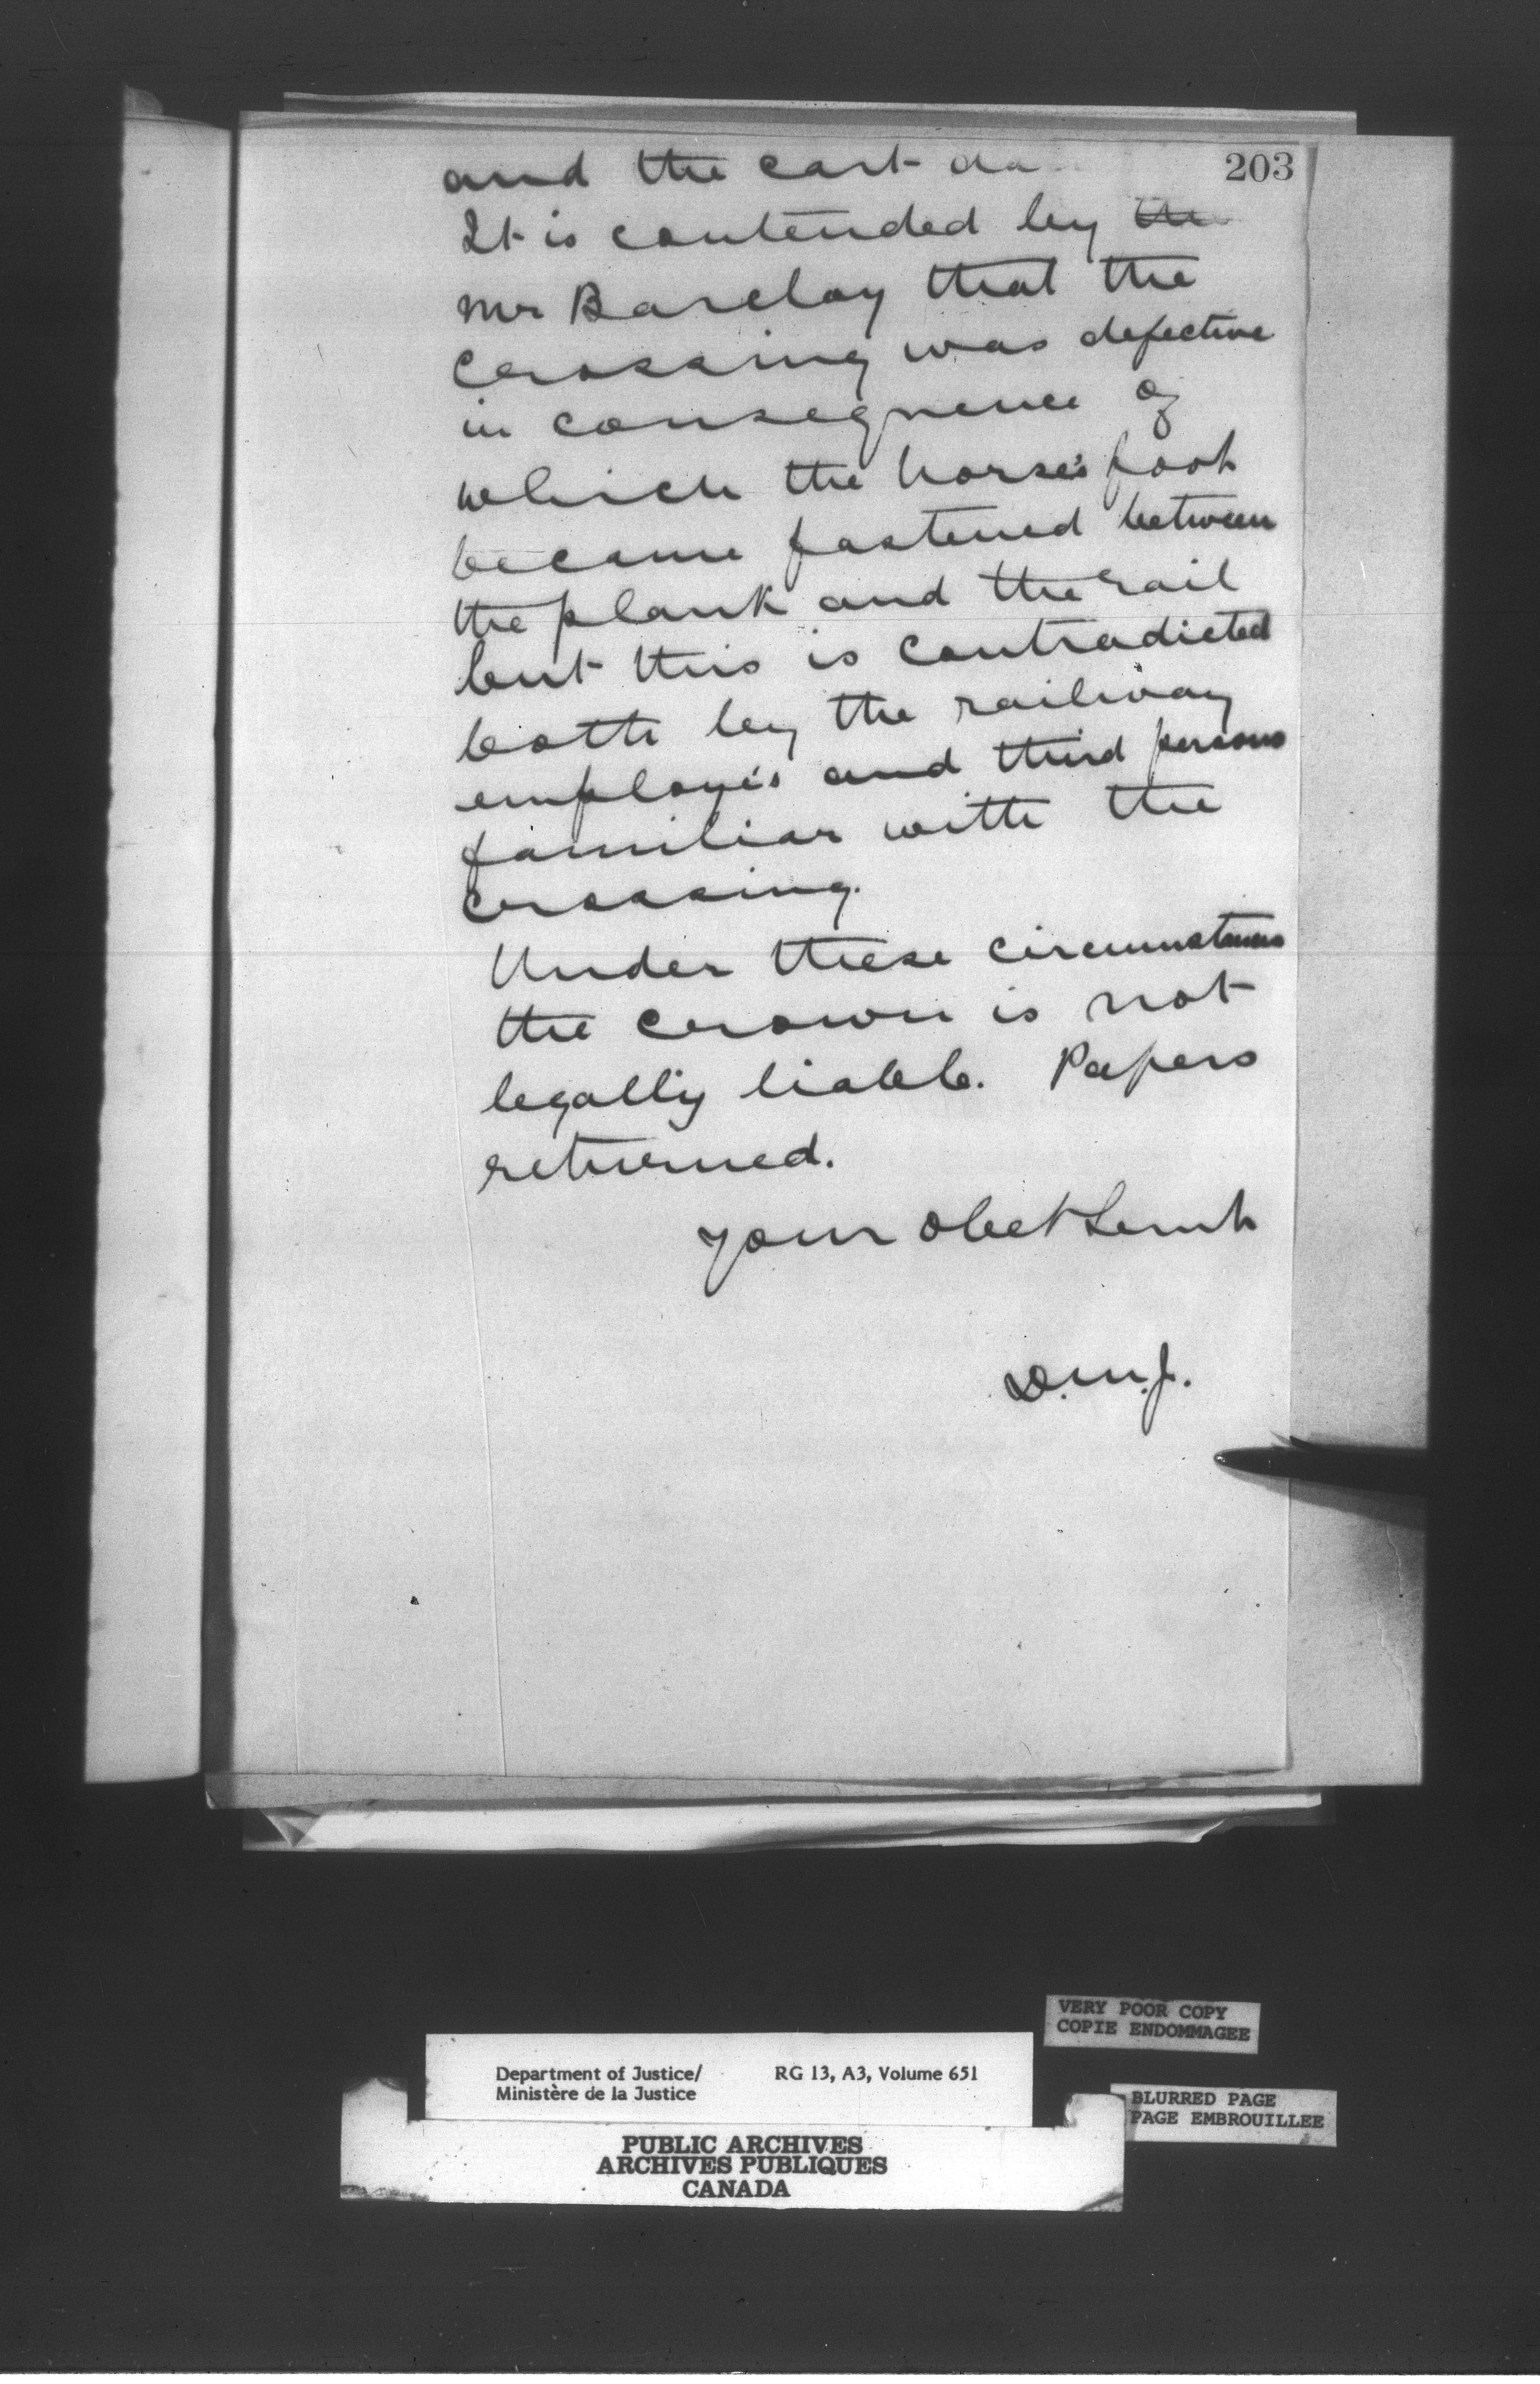 203
and the cart da
It is contended by the
Mr Barclay that the
crossing was defective
in consequence of
which the horse's foot
became fastened between
the plank and the rail
but this is contradicted
both by the railway
employés and third persons
familiar with the
crossing.
Under these circumstances
the crown is not
legally liable. Papers
returned.
Your obet Servt
D.M.J.
VERY POOR COPY
COPIE ENDOMMAGEE
Department of Justice/ RG 13, A3, Volume 651
Ministère de la Justice
BLURRED PAGE
PAGE EMBROUILLEE
PUBLIC ARCHIVES
ARCHIVES PUBLIQUES
CANADA